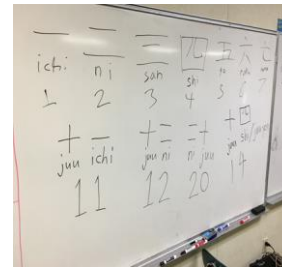 一 二 三 四 五 六 七
ichi ni san shi
1 2 3 4 5 6 7
十一 十二 二十 十四
juu ichi juu ni ni juu juu shi/
11 12 20 14